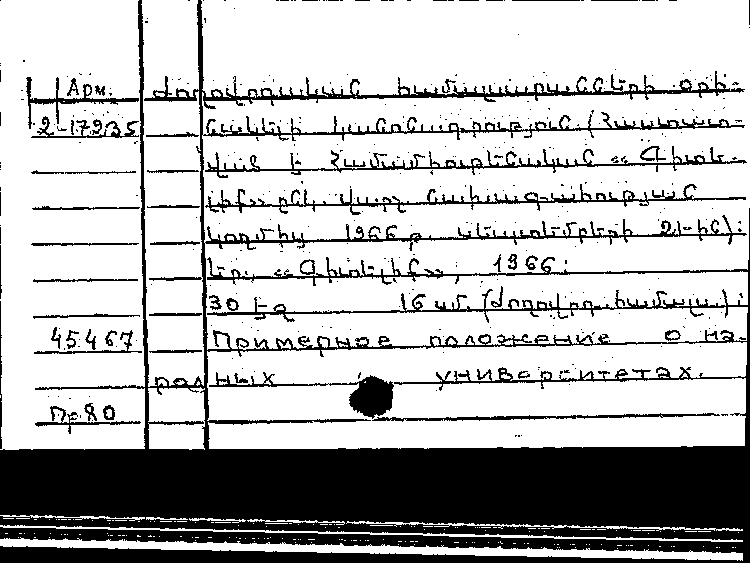 Арм. Ժողովրդական համալսարանների օրի-
2-17935 նակելի կանոնադրություն. (Հաստատ-
ված է Համամիութենական «Գիտե-
լիք» ընկ. վարչ. նախագահության
կողմից 1966 թ. սեպտեմբերի 21-ին):
Եր., «Գիտելիք», 1966:
30 էջ 16 սմ. (Ժողովրդ. համալս.):
45.467 Примерное положение о на-
родных университетах.
Пр.80